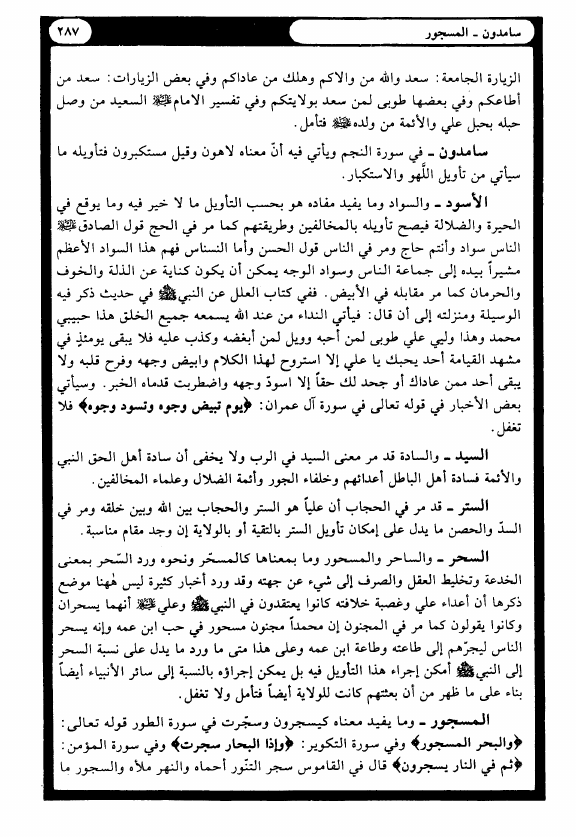 سامدون ـ المسجور
٢٨٧
الزيارة الجامعة: سعد والله من والاكم وهلك من عاداكم وفي بعض الزيارات: سعد من
أطاعكم وفي بعضها طوبى لمن سعد بولايتكم وفي تفسير الامام السعيد من وصل
حبله بحبل علي والأئمة من ولده فتأمل.
سامدون ـ في سورة النجم ويأتي فيه أنّ معناه لاهون وقيل مستكبرون فتأويله ما
سيأتي من تأويل اللّهو والاستكبار.
الأسود ـ والسواد وما يفيد مفاده هو بحسب التأويل ما لا خير فيه وما يوقع في
الحيرة والضلالة فيصح تأويله بالمخالفين وطريقتهم كما مر في الحج قول الصادق
الناس سواد وأنتم حاج ومر في الناس قول الحسن وأما النسناس فهم هذا السواد الأعظم
مشيراً بيده إلى جماعة الناس وسواد الوجه يمكن أن يكون كناية عن الذلة والخوف
والحرمان كما مر مقابله في الأبيض. ففي كتاب العلل عن النبي ﷺ في حديث ذكر فيه
الوسيلة ومنزلته إلى أن قال: فيأتي النداء من عند الله يسمعه جميع الخلق هذا حبيبي
محمد وهذا وليي علي طوبى لمن أحبه وويل لمن أبغضه وكذب عليه فلا يبقى يومئذٍ في
مشهد القيامة أحد يحبك يا علي إلا استروح لهذا الكلام وابيض وجهه وفرح قلبه ولا
يبقى أحد ممن عاداك أو جحد لك حقاً إلا اسودّ وجهه واضطربت قدماه الخبر. وسيأتي
بعض الأخبار في قوله تعالى في سورة آل عمران: ﴿يوم تبيض وجوه وتسود وجوه﴾ فلا
تغفل.
السيد ـ والسادة قد مر معنى السيد في الرب ولا يخفى أن سادة أهل الحق النبي
والأئمة فسادة أهل الباطل أعدائهم وخلفاء الجور وأئمة الضلال وعلماء المخالفين.
الستر ـ قد مر في الحجاب أن علياً هو الستر والحجاب بين الله وبين خلقه ومر في
السدّ والحصن ما يدل على إمكان تأويل الستر بالتقية أو بالولاية إن وجد مقام مناسبة.
السحر ـ والساحر والمسحور وما بمعناها كالمسحّر ونحوه ورد السّحر بمعنى
الخدعة وتخليط العقل والصرف إلى شيء عن جهته وقد ورد أخبار كثيرة ليس لههنا موضع
ذكرها أن أعداء علي وغصبة خلافته كانوا يعتقدون في النبي ﷺ وعلي أنهما يسحران
وكانوا يقولون كما مر في المجنون إن محمداً مجنون مسحور في حب ابن عمه وإنه يسحر
الناس ليجرّهم إلى طاعته وطاعة ابن عمه وعلى هذا متى ما ورد ما يدل على نسبة السحر
إلى النبي ﷺ أمكن إجراء هذا التأويل فيه بل يمكن إجراؤه بالنسبة إلى سائر الأنبياء أيضاً
بناء على ما ظهر من أن بعثتهم كانت للولاية أيضاً فتأمل ولا تغفل.
المسجور ـ وما يفيد معناه كيسجرون وسجّرت في سورة الطور قوله تعالى:
﴿والبحر المسجور﴾ وفي سورة التكوير: ﴿وإذا البحار سجرت﴾ وفي سورة المؤمن:
﴿ثم في النار يسجرون﴾ قال في القاموس سجر التنّور أحماه والنهر ملأه والسجور ما